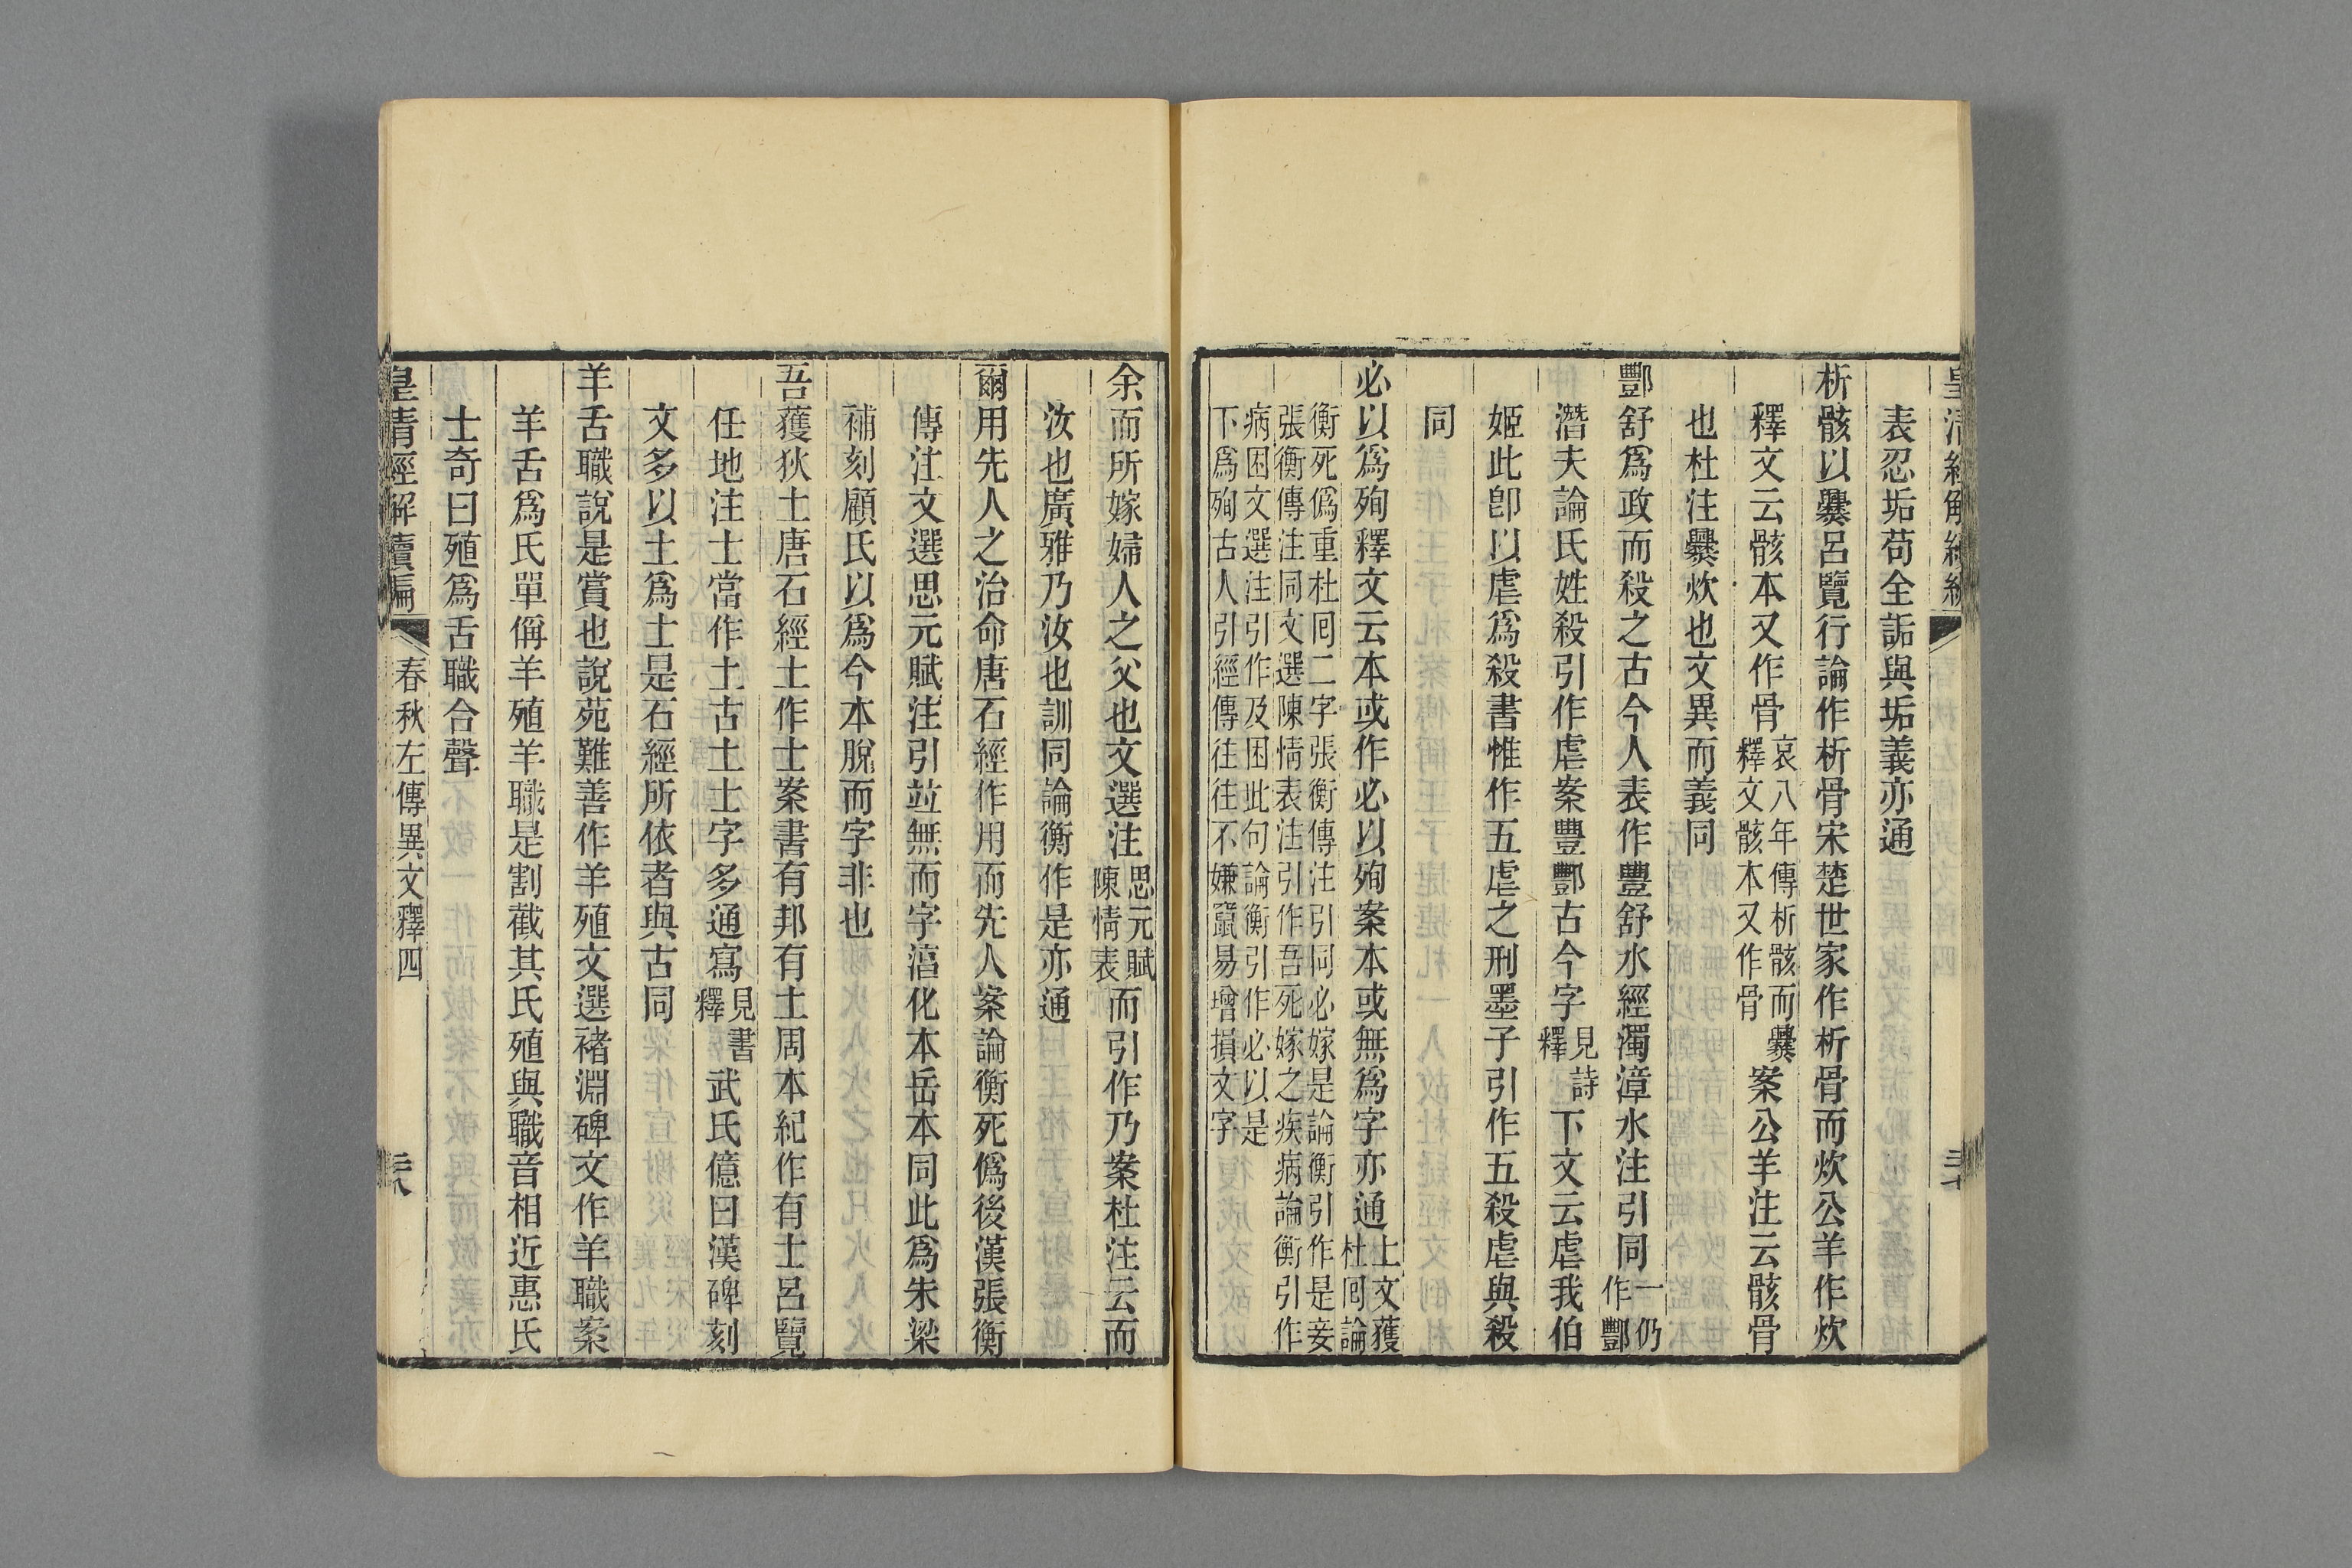 表忍垢苟全詬與垢義亦通
析骸以爨呂覽行論作析骨宋楚世家作析骨而炊公羊作炊
釋文云骸本又作骨哀八年傳析骸而爨釋文骸本又作骨案公羊注云骸骨
也杜注爨炊也文異而義同
酆舒爲政而殺之古今人表作豐舒水經濁漳水注引同一仍作酆
潛夫論氏姓殺引作虐案豐酆古今字見詩釋下文云虐我伯
姬此卽以虐爲殺書惟作五虐之刑墨子引作五殺虐與殺
同
必以爲殉釋文云本或作必以殉案本或無爲字亦通上文獲杜囘論
衡死僞重杜囘二字張衡傳注引同必嫁是論衡引作是妾
張衡傳注同文選陳情表注引作吾死嫁之疾病論衡引作
病困文選注引作及困此句論衡引作必以是
下爲殉古人引經傳往往不嫌竄易增損文字
余而所嫁婦人之父也文選注思元賦陳情表而引作乃案杜注云而
汝也廣雅乃汝也訓同論衡作是亦通
爾用先人之治命唐石經作用而先人案論衡死僞後漢張衡
傳注文選思元賦注引竝無而字湻化本岳本同此爲朱梁
補刻顧氏以爲今本脫而字非也
吾獲狄土唐石經土作士案書有邦有土周本紀作有士呂覽
任地注士當作土古土士字多通寫見書釋武氏億曰漢碑刻
文多以土爲士是石經所依者與古同
羊舌職說是賞也說苑難善作羊殖文選褚淵碑文作羊職案
羊舌爲氏單偁羊殖羊職是割截其氏殖與職音相近惠氏
士奇曰殖爲舌職合聲
皇清經解續編 春秋左傳異文釋四